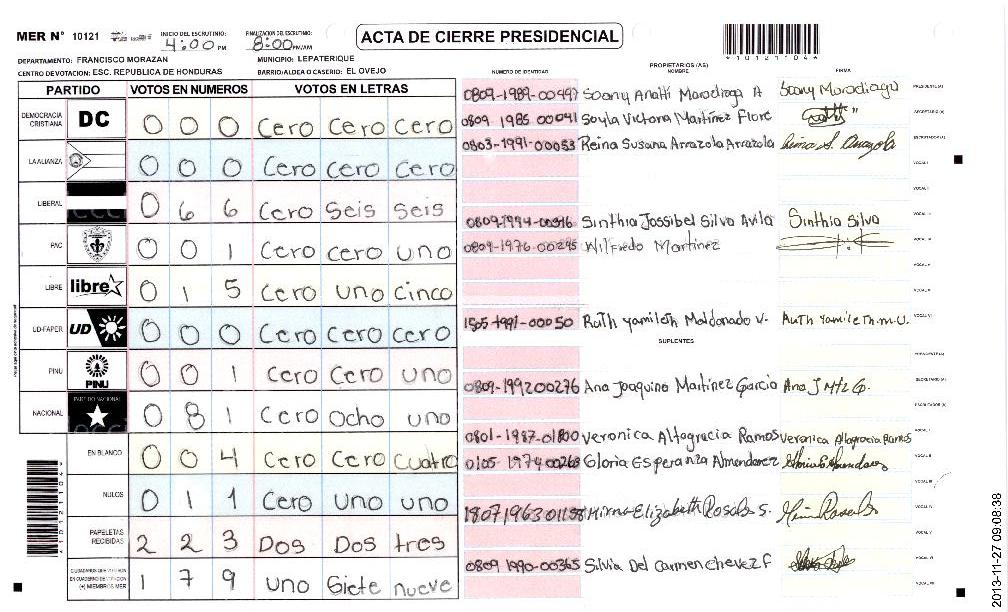 MER N° 10121
INICIO DEL ESCRUTINIO: 4:00 PM
FINALIZACION DEL ESCRUTINIO: 8:00 PM/AM
ACTA DE CIERRE PRESIDENCIAL
*10121104*
DEPARTAMENTO: FRANCISCO MORAZAN MUNICIPIO: LEPATERIQUE
CENTRO DE VOTACION: ESC. REPUBLICA DE HONDURAS BARRIO/ALDEA O CASERIO: EL OVEJO
PARTIDO VOTOS EN NUMEROS VOTOS EN LETRAS
DEMOCRACIA CRISTIANA DC 0 0 0 Cero Cero Cero
LA ALIANZA 0 0 0 Cero Cero Cero
LIBERAL 0 6 6 Cero Seis Seis
PAC 0 0 1 Cero cero uno
LIBRE libre 0 1 5 Cero uno cinco
UD-FAPER UD 0 0 0 Cero Cero Cero
PINU PINU 0 0 1 Cero Cero uno
NACIONAL PARTIDO NACIONAL 0 8 1 Cero Ocho uno
EN BLANCO 0 0 4 Cero Cero Cuatro
NULOS 0 1 1 Cero Uno uno
PAPELETAS RECIBIDAS 2 2 3 Dos Dos tres
CIUDADANOS QUE VOTARON EN CUADERNO DE VOTACION (+) MIEMBROS MER 1 7 9 uno Siete nueve
NUMERO DE IDENTIDAD PROPIETARIOS (AS) NOMBRE FIRMA
0809-1989-00497 Soany Anatti Moradiaga A Soany Moradiaga PRESIDENTE(A)
0809 1985 00041 Soyla Victoria Martinez Flore SECRETARIO(A)
0803-1991-00053 Reina Susana Arrazola Arrazola ESCRUTADOR(A)
VOCAL I
VOCAL II
0809-1994-00316 Sinthia Jossibel Silva Avila Sinthia Silva VOCAL III
0809-1976-00295 Wilfredo Martinez VOCAL IV
VOCAL V
1505-1991-00050 Ruth Yamileth Maldonado V. Ruth Yamileth m.U.
SUPLENTES
PRESIDENTE(A)
0809-199200276 Ana Joaquina Martinez Garcia Ana J Mtz G. SECRETARIO(A)
ESCRUTADOR(A)
0801-1987-01800 Veronica Altagracia Ramos Veronica Altagracia Ramos
0105-1974-00268 Gloria Esperanza Almendarez
1807196301158 Mirna Elizabeth Rosales S.
0809 1990-00365 Silvia Del carmen Chevez F
2013-11-27 09:08:38